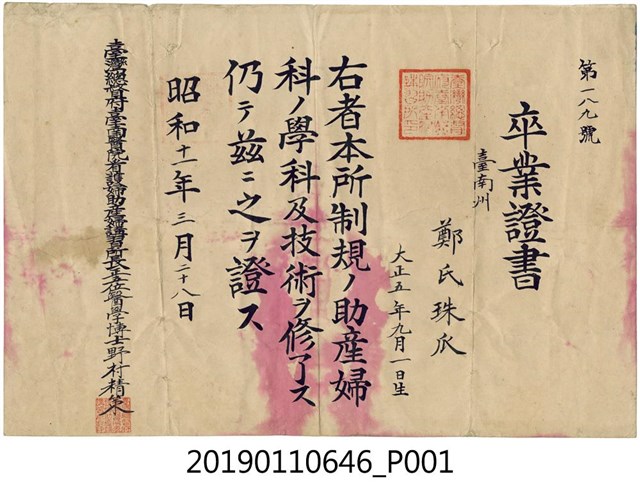 第一八九號
卒業證書
臺南州
鄭氏珠爪
大正五年九月一日生
右者本所制規ノ助産婦
科ノ學科及技術ヲ修了ス
仍テ茲ニ之ヲ證ス
昭和十一年三月二十八日
臺灣總督府臺南醫院看護婦助産婦講習所長正五位醫學博士野村精策
20190110646_P001